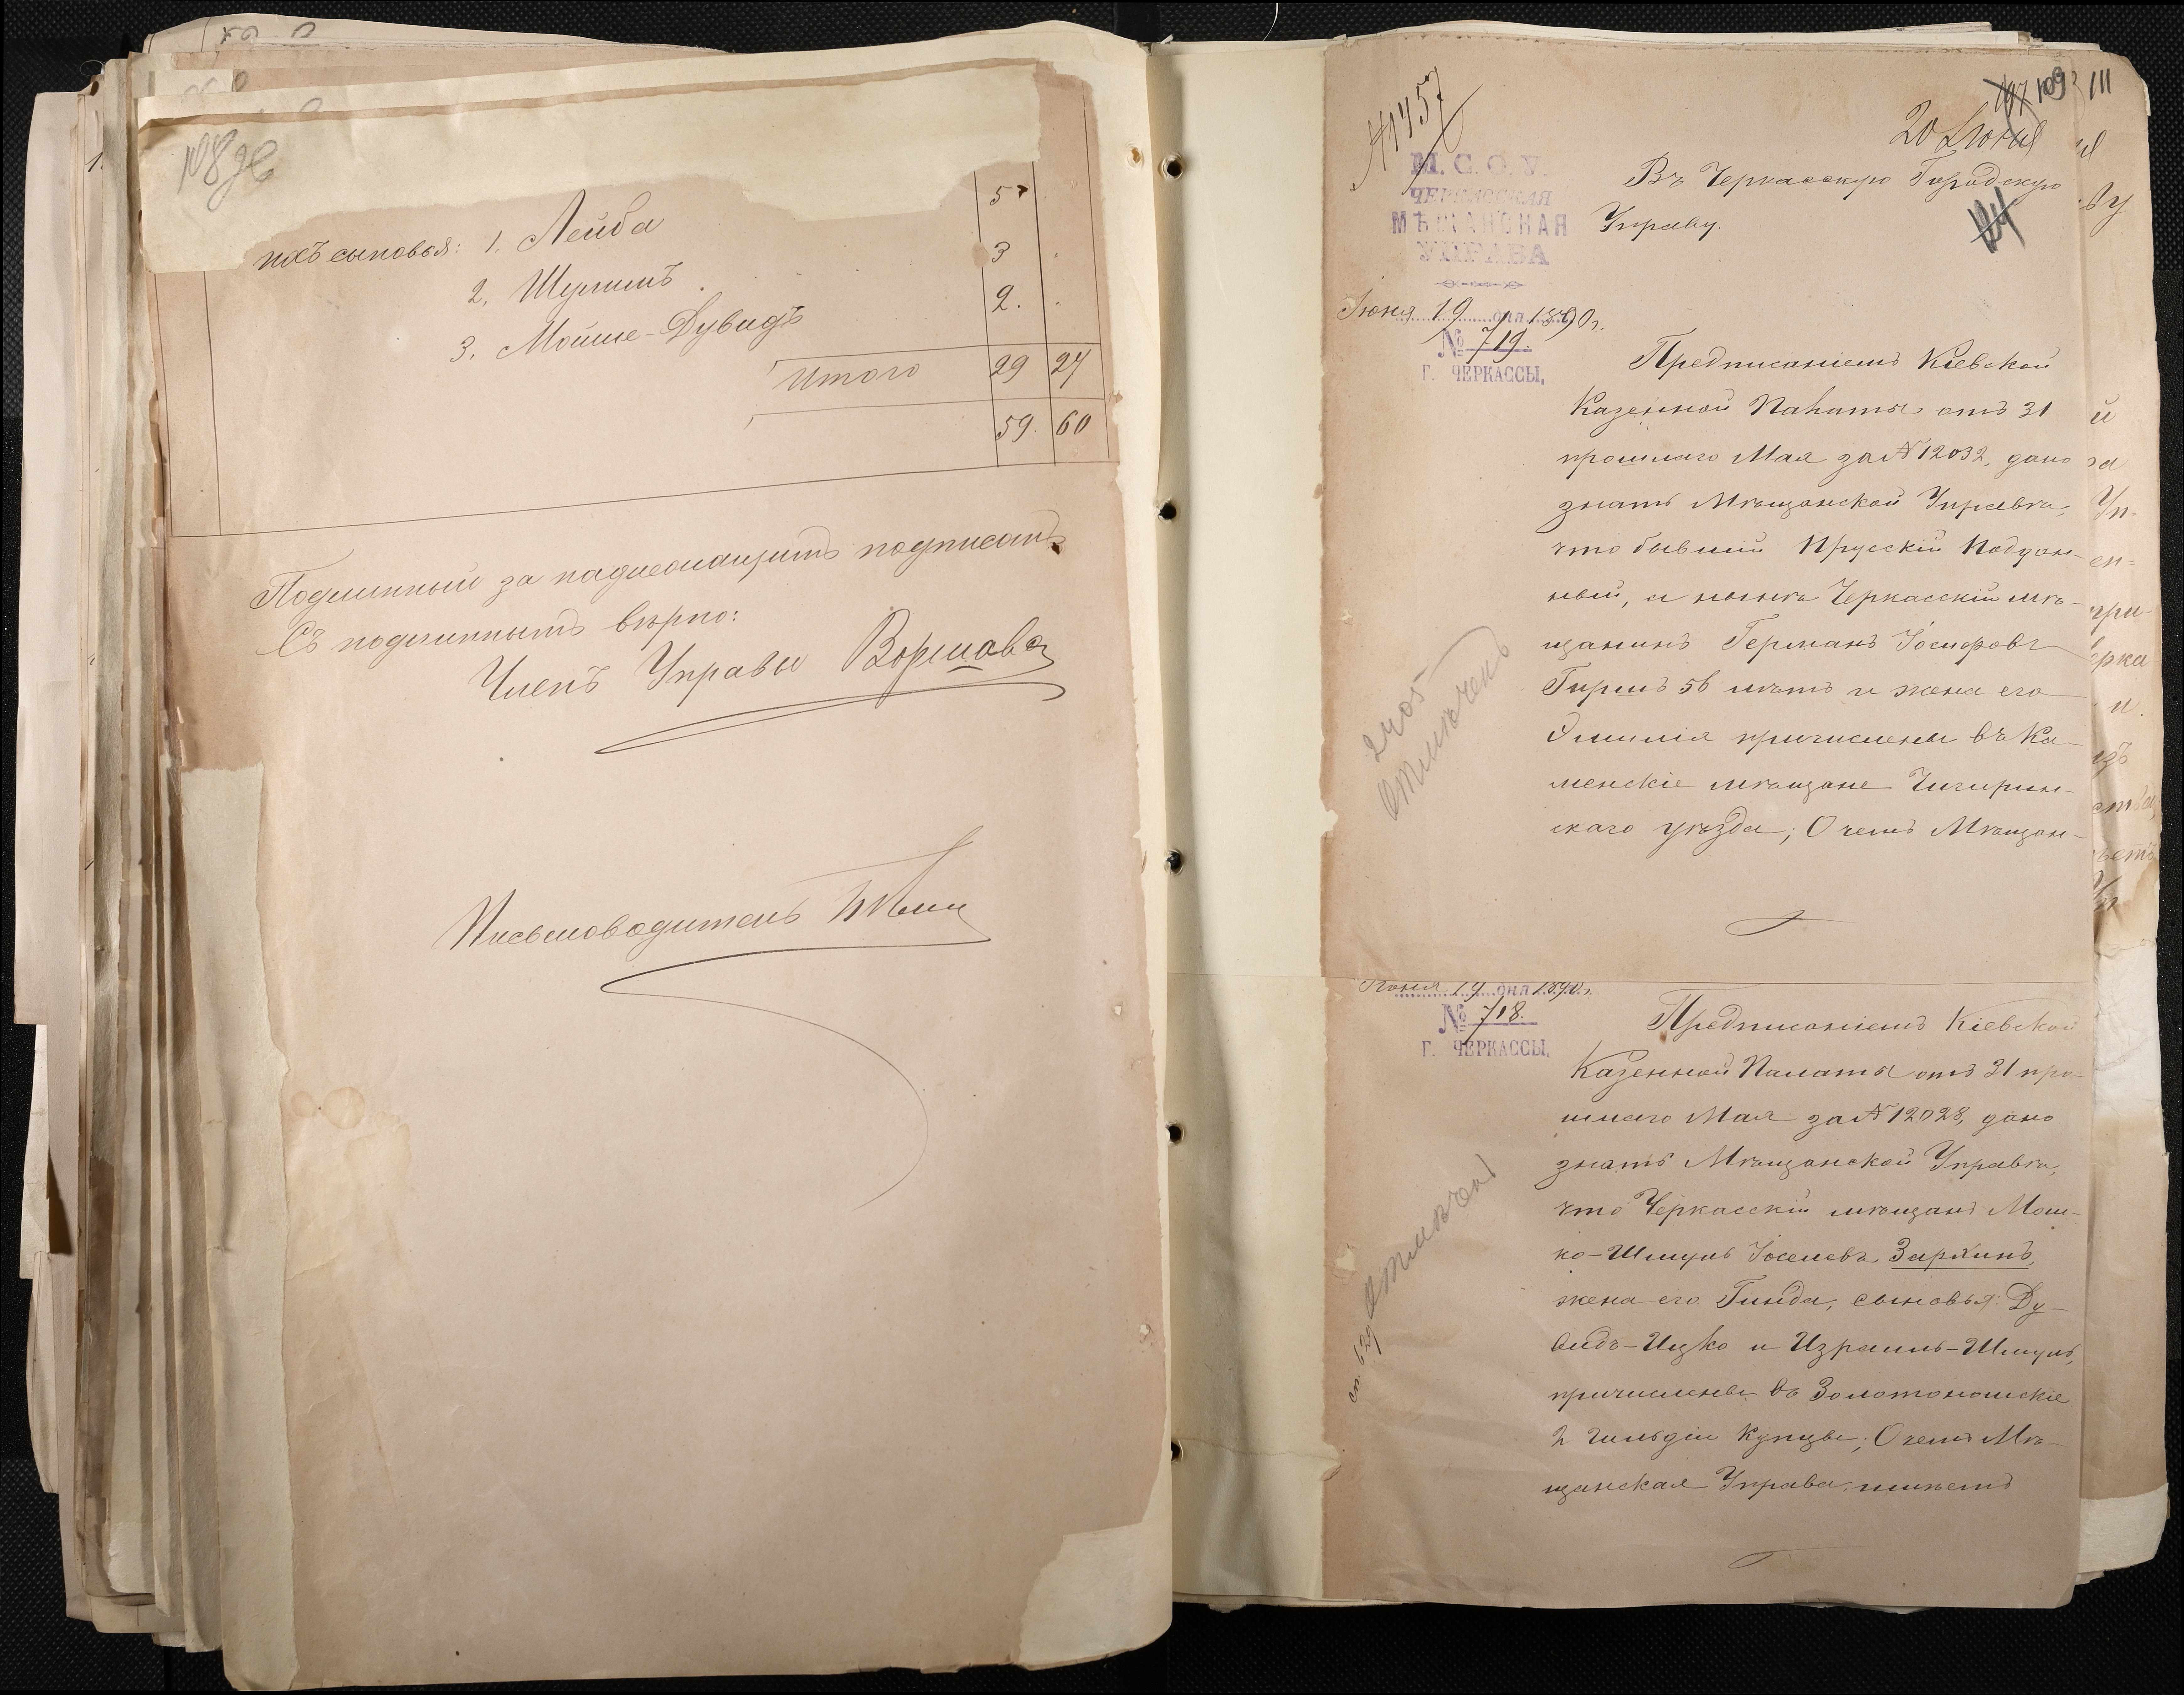 108 об
ихъ сыновья: 1. Лейба 5
2. Шулимъ 3
3. Мойше-Дувидъ 2.
Итого 29 27
59. 60
Подлинный за надлежащимъ подписомъ
Съ подлиннымъ вѣрно:
Членъ Управы
Письмоводитель
109 111
20 Іюня
№ 1457
М. С. О. У.
ЧЕРКАССКАЯ
МѢЩАНСКАЯ
УПРАВА
Іюня 19 дня 1890 г.
№ 719.
Г. ЧЕРКАССЫ,
Въ Черкасскую Городскую
Управу.
Предписаніемъ Кіевской
Казенной Палаты отъ 31
прошлаго Мая за № 12032, дано
знать Мѣщанской Управѣ,
что бывшій Прусскій Поддан-
ный, а нынѣ Черкасскій мѣ-
щанинъ Германъ Іосифовъ
Гиршъ 56 лѣтъ и жена его
Эмилія причислены въ Ка-
менскіе мѣщане Чигирин-
скаго уѣзда; О чемъ Мѣщан-
отмѣченъ
Іюня 19 дня 1890 г.
№ 718.
Г. ЧЕРКАССЫ,
Предписаніемъ Кіевской
Казенной Палаты отъ 31 про-
шлаго Мая за № 12028, дано
знать Мѣщанской Управѣ,
что Черкасскій мѣщанъ Мош-
ко-Шмуль Іоселевъ Зархинъ,
жена его Гинда, сыновья: Ду-
видъ-Ицко и Израиль-Шмуль,
причислены въ Золотоношскіе
2 гильдіи купцы; О чемъ Мѣ-
щанская Управа имѣетъ
отмѣченъ